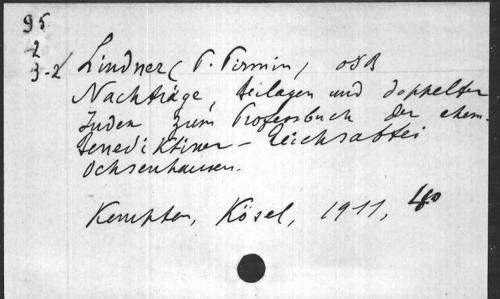 95
2
3-2
Lindner (P. Pirmin) OSB
Nachträge, Beilagen und doppelter
Index zum Professbuch der ehem.
Benediktiner-Reichsabtei
Ochsenhausen.
Kempten, Kösel, 1911, 4º